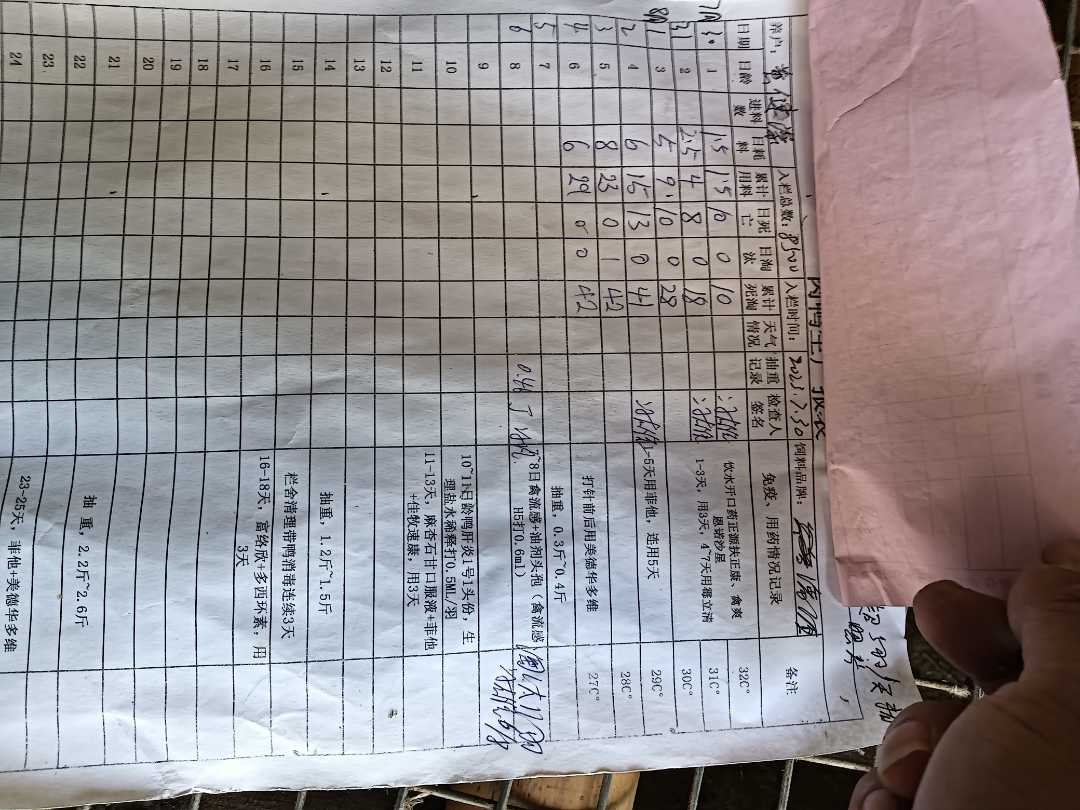 肉鸭生产报表
养户: 入栏总数: 8500 入栏时间: 2023.7.30 饲料品牌:
日期 日龄 进料数 日耗料 累计用料 日死亡 日淘汰 累计死淘 天气情况 抽重记录 检查人签名 免疫、用药情况记录 备注
7月30 1 1.5 1.5 10 0 10 饮水开口药正源扶正康、禽爽恩诺沙星 32C°
31 2 2.5 4 8 0 18 1-3天，用3天，4~7天用毒立消 31C°
8月1 3 5 9 10 0 28 30C°
2 4 6 15 13 0 41 1-5天用菲他，连用5天 29C°
3 5 8 23 0 1 42 28C°
4 6 6 29 0 0 42 打针前后用美德华多维 27C°
5 7 抽重，0.3斤~0.4斤
6 8 0.46斤 7~8日禽流感+油剂头孢（禽流感H5打0.6ml）
9
10 10~11日龄鸭肝炎1号1头份，生理盐水稀释打0.5ML/羽
11 11-13天，麻杏石甘口服液+菲他+佳牧速康，用3天
12
13
14 抽重，1.2斤~1.5斤
15 栏舍清理带鸭消毒连续3天
16 16-18天，富络欣+多西环素，用3天
17
18
19
20
21
22 抽 重，2.2斤~2.6斤
23
24 23~25天，菲他+美德华多维